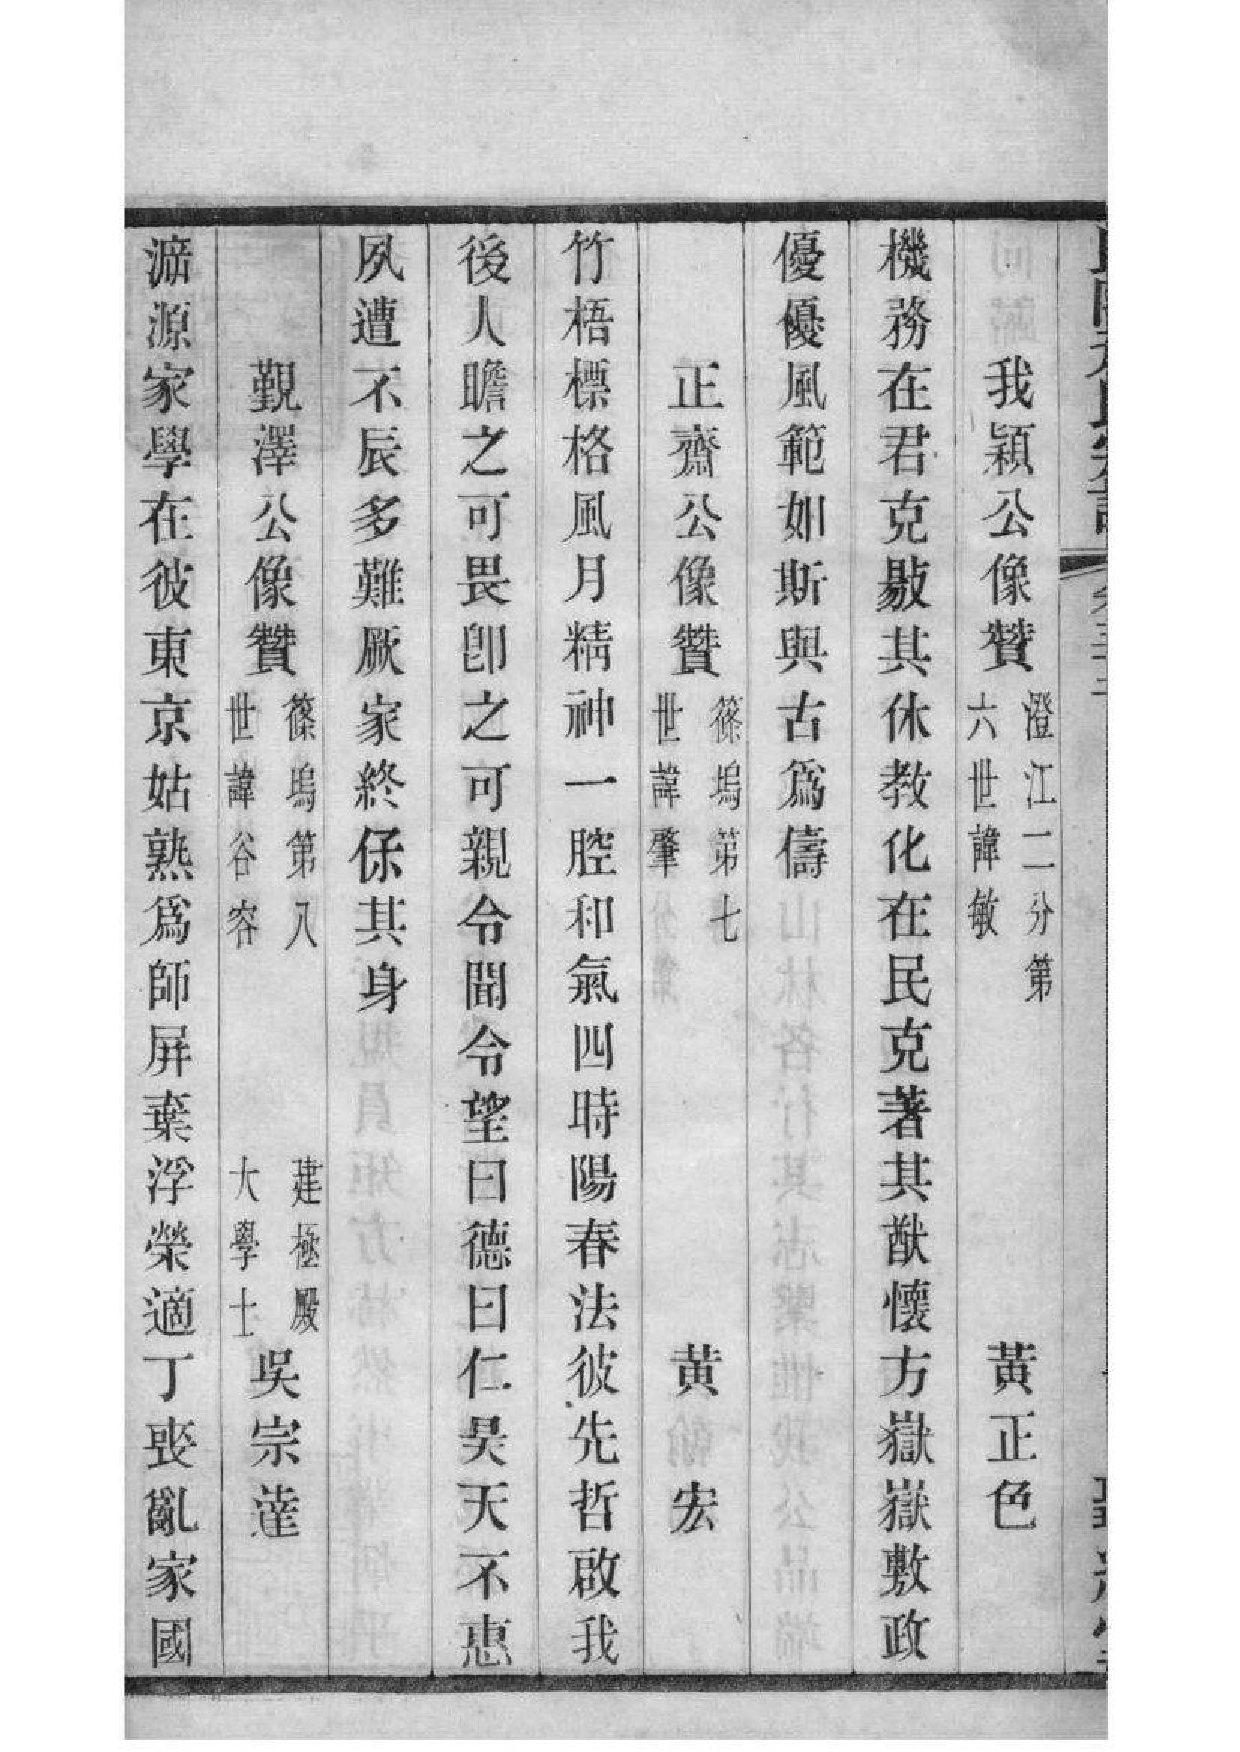 我穎公像贊 澄江二分第六世諱敏 黃正色
機務在君克敭其休教化在民克著其猷懷方嶽嶽敷政
優優風範如斯與古爲儔
正齋公像贊 篠塢第七世諱肇 黃宏
竹梧標格風月精神一腔和氣四時陽春法彼先哲啟我
後人瞻之可畏卽之可親令聞令望曰德曰仁昊天不惠
夙遭不辰多難厥家終保其身
觀澤公像贊 篠塢第八世諱谷容 建極殿大學士 吳宗達
源家學在彼東京姑熟爲師屏棄浮榮適丁喪亂家國